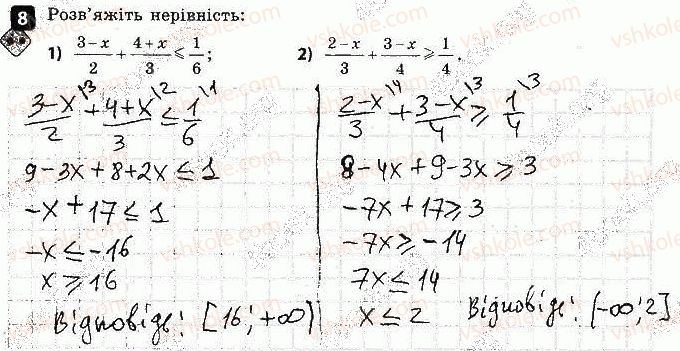 8 Розв'яжіть нерівність:
1) (3−x)/2 + (4+x)/3 ⩽ 1/6;
2) (2−x)/3 + (3−x)/4 ⩾ 1/4.
(3−x)/2 \3 + (4+x)/3 \2 ≤ 1/6 \1
9−3x+8+2x ≤ 1
−x+17 ≤ 1
−x ≤ −16
x ≥ 16
Відповідь: [16; +∞)
(2−x)/3 \4 + (3−x)/4 \3 ≥ 1/4 \3
8−4x+9−3x ≥ 3
−7x+17 ≥ 3
−7x ≥ −14
7x ≤ 14
x ≤ 2
Відповідь: (−∞; 2]
vshkole.com